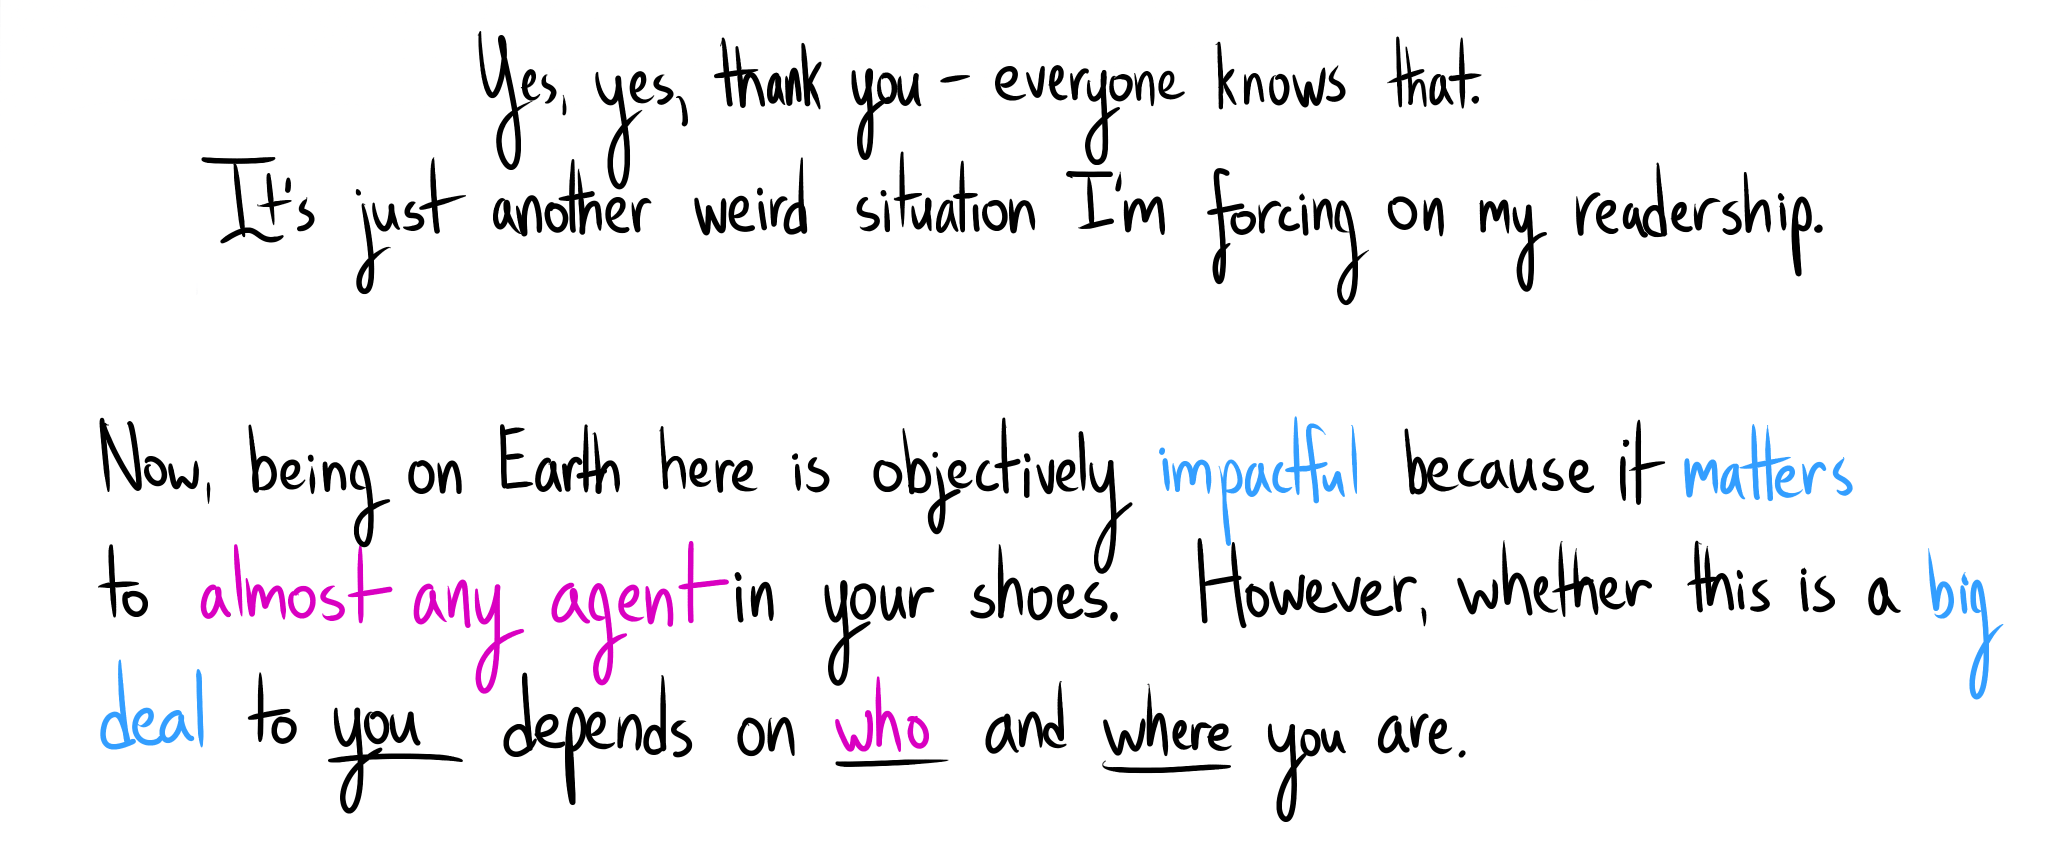 Yes, yes, thank you – everyone knows that.
It's just another weird situation I'm forcing on my readership.
Now, being on Earth here is objectively impactful because it matters
to almost any agent in your shoes. However, whether this is a big
deal to you depends on who and where you are.